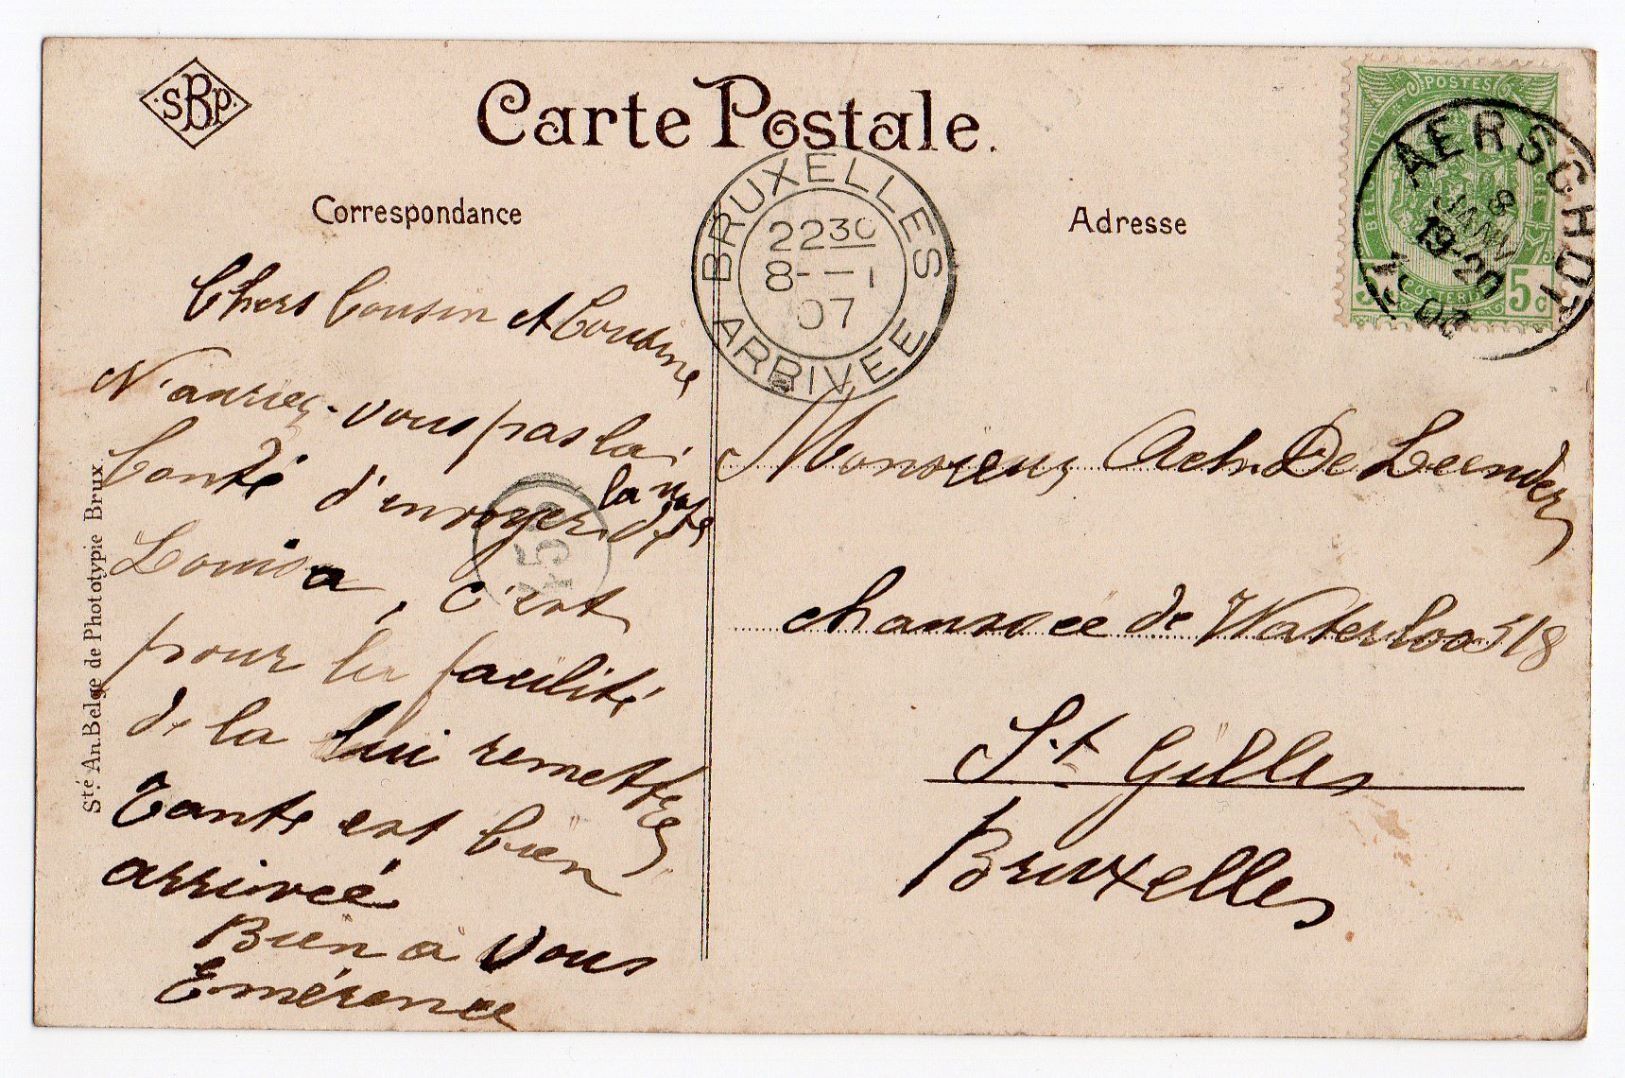 SBP
Carte Postale.
Correspondance
Adresse
POSTES
AERSCHOT
8
JANV
19-20
5c
BRUXELLES
22 30
8 - - 1
07
ARRIVEE
Chers Cousin et Cousine
N'auriez-vous pas la
bonté d'envoyer la note de
Louisa, c'est
pour la facilité
de la lui remettre,
Tante est bien
arrivée
Bien à vous
Emérence
Monsieur De Leender
chaussée de Waterloo 518
St Gilles
Bruxelles
Sté An. Belge de Phototypie Brux.